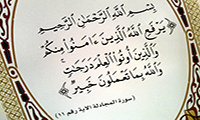 بِسْمِ اللَّهِ الرَّحْمَٰنِ الرَّحِيمِ
﴿ يَرْفَعِ اللَّهُ الَّذِينَ ءَامَنُوا مِنكُمْ
وَالَّذِينَ أُوتُوا الْعِلْمَ دَرَجَٰتٍ
وَاللَّهُ بِمَا تَعْمَلُونَ خَبِيرٌ ﴾
(سورة المجادلة الاية رقم ١١)